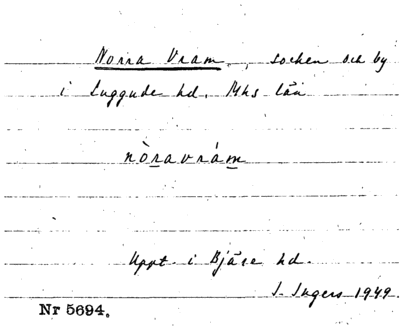 Norra Vram, socken och by
i Luggude hd. Mhs län
nòravrám
Uppt. i Bjäre hd.
I. Ingers 1949.
Nr 5694.